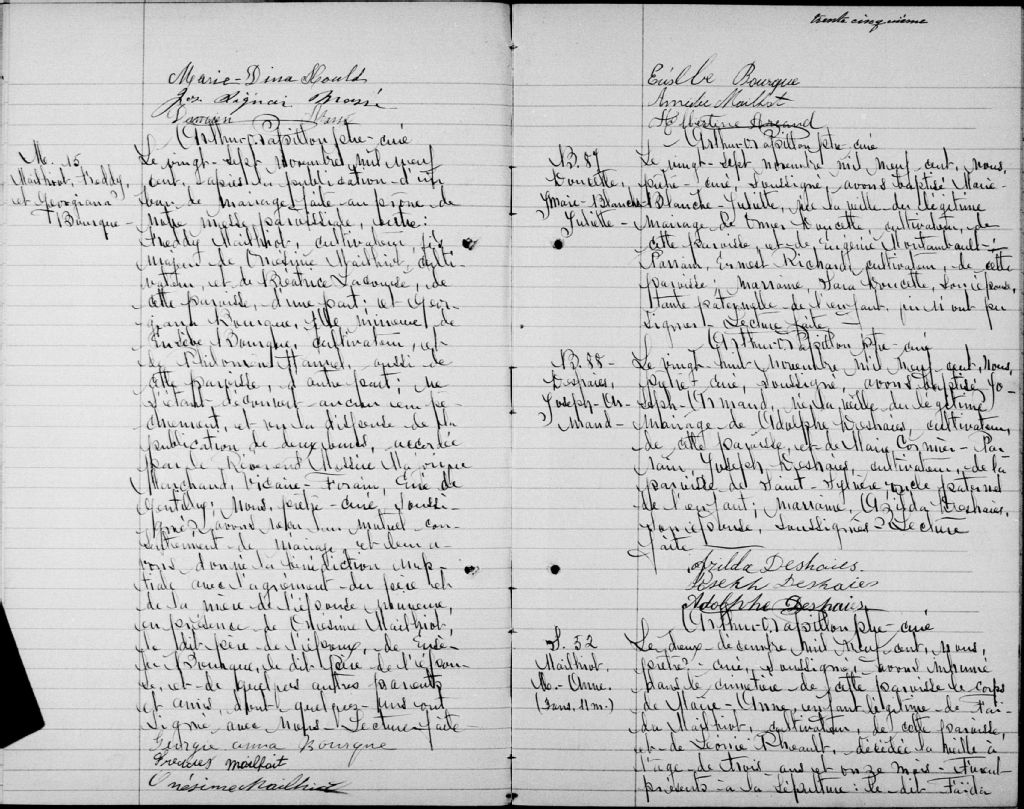 Marie-Dina Hould
Jos. Lignai Brassé
Damien
Arthur O. Papillon ptre-curé
M. 15.
Mailhiot, Freddy,
et Georgianna
Bourque-
Le vingt-sept novembre, mil neuf
cent, après la publication d'un
ban de mariage faite au prône de
notre messe paroissiale, entre:
Freddy Mailhiot, cultivateur, fils
majeur de Onésime Mailhiot, culti-
vateur, et de Béatrice Lacourse, de
cette paroisse, d'une part; et Geor-
gianna Bourque, fille mineure de
Eusèbe Bourque, cultivateur, et
de Philomène Hamel, aussi de
cette paroisse, d'autre part; ne
s'étant découvert aucun empê-
chement, et vu la dispense de la
publication de deux bans, accordée
par le Révérend Messire
Marchand, Vicaire-Forain, Curé de
Gentilly; Nous, prêtre-curé, soussi-
gné, avons reçu leur mutuel con-
sentement de mariage et leur a-
vons donné la bénédiction nup-
tiale avec l'agrément du père et
de la mère de l'épouse mineure,
en présence de Onésime Mailhiot,
le dit père de l'époux, de Eusè-
be Bourque, le dit père de l'épou-
se, et de quelques autres parents
et amis, dont quelques-uns ont
signé avec nous. Lecture faite
Georgie anna Bourque
Fredey mailhait
Onésime Mailhiot
trente cinquième
Bourque
Amédée Mailhot
Arthur O. Papillon ptre-curé
B. 87
Doucette,
Marie-Blanche-
Juliette-
Le vingt-sept novembre mil neuf cent, nous,
prêtre-curé, soussigné, avons baptisé Marie-
Blanche-Juliette, née la veille du légitime
mariage de Omer Doucette, cultivateur, de
cette paroisse, et de Eugénie Montambault;
Parrain, Ernest Richard, cultivateur, de cette
paroisse; marraine, Doucette, son épouse,
tante paternelle de l'enfant, qui n'ont pu
signer. Lecture faite
Arthur O. Papillon ptre-curé
B. 88-
Deshaies,
Joseph-Ar-
mand-
Le vingt-huit novembre mil neuf cent, Nous,
prêtre-curé, soussigné, avons baptisé Jo-
seph-Armand, né la veille du légitime
mariage de Adolphe Deshaies, cultivateur,
de cette paroisse, et de Marie Cormier- Par-
rain, Joseph Deshaies, cultivateur, de la
paroisse de Saint-Sylvère, oncle paternel
de l'enfant; marraine, Azilda Deshaies,
son épouse, soussignés. Lecture
faite
Azilda Deshaies.
Joseph Deshaies
Adolphe Deshaies
Arthur O. Papillon ptre-curé
S. 32
Mailhiot.
M.-Anne.
(3 ans, 11 m.)
Le deux décembre mil neuf cent, Nous,
prêtre-curé, soussigné, avons inhumé
dans le cimetière de cette paroisse le corps
de Marie-Anne, enfant légitime de Faï-
da Mailhiot, cultivateur, de cette paroisse,
et de Léonie Rheault, décédée la veille à
l'âge de trois ans et onze mois- Furent
présents à la sépulture: le dit Faïda